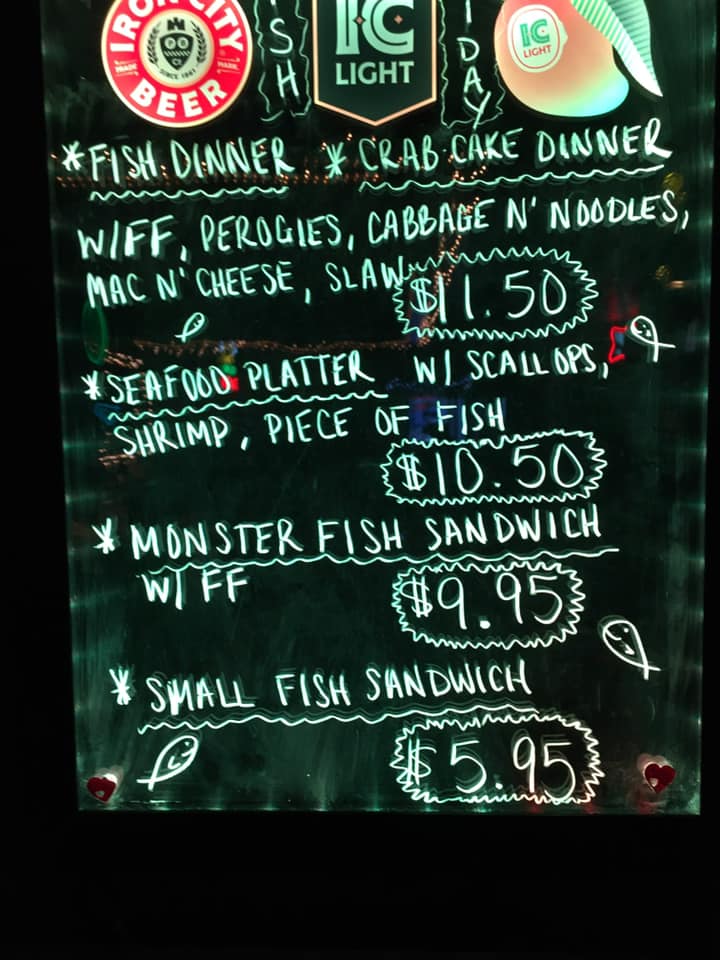 IRON CITY
TRADE MARK
SINCE 1861
BEER
ISH
IC
LIGHT
IDAY
IC
LIGHT
*FISH DINNER * CRAB CAKE DINNER
W/FF, PEROGIES, CABBAGE N' NOODLES,
MAC N' CHEESE, SLAW $11.50
*SEAFOOD PLATTER W/ SCALLOPS,
SHRIMP, PIECE OF FISH
$10.50
* MONSTER FISH SANDWICH
W/ FF $9.95
* SMALL FISH SANDWICH
$5.95